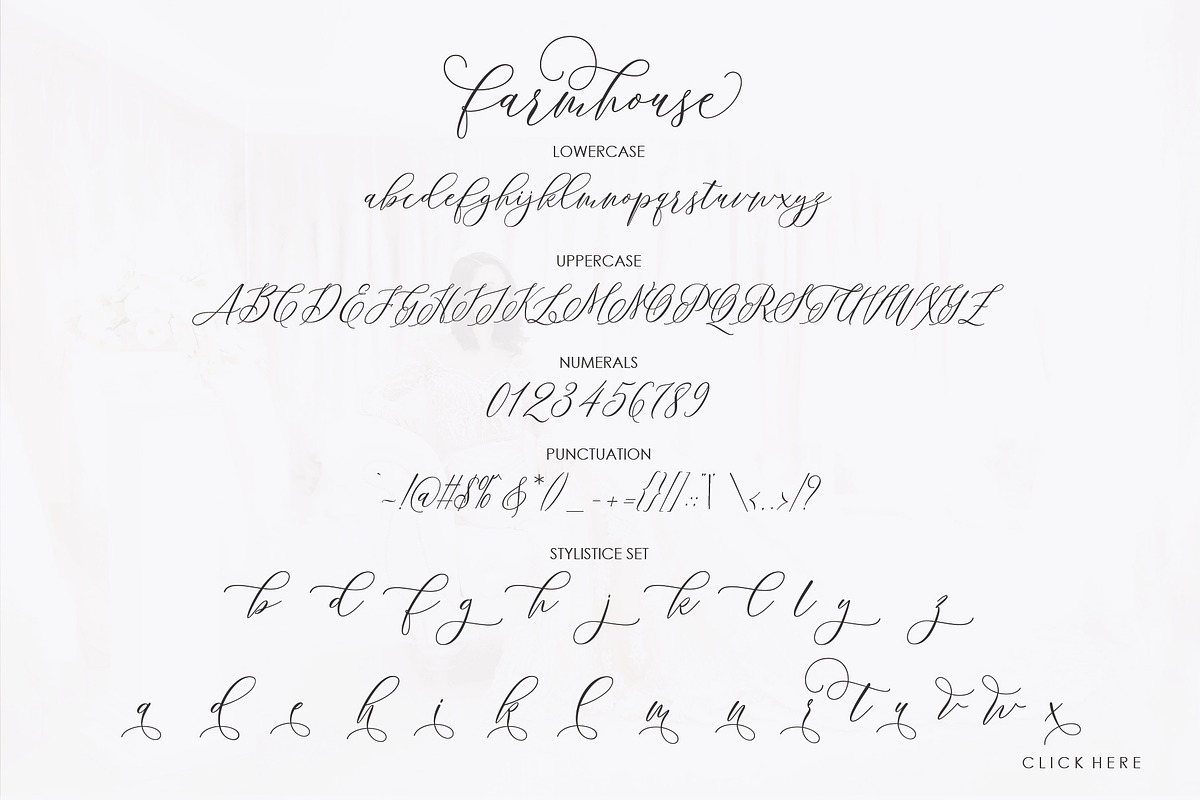 farmhouse
LOWERCASE
abcdefghijklmnopqrstuvwxyz
UPPERCASE
ABCDEFGHIJKLMNOPQRSTUVWXYZ
NUMERALS
0123456789
PUNCTUATION
`~!@#$%^&*()_-+={}[]:;"'|\<,.>/?
STYLISTICE SET
b d f g h j k l l y z
a d e h i k l m n r t u v w x
CLICK HERE